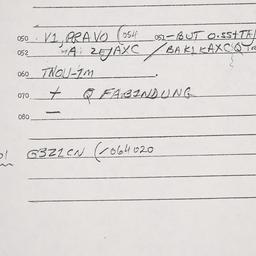 050 . V1, BRAVO (054 051-BUT 0.55+TA
052 -A: 2EJAXC / BAK1KAXC'Q
060 TNOU-1M .
070 + Q FABINDUNG
080 —
G3Z1CN (/064020